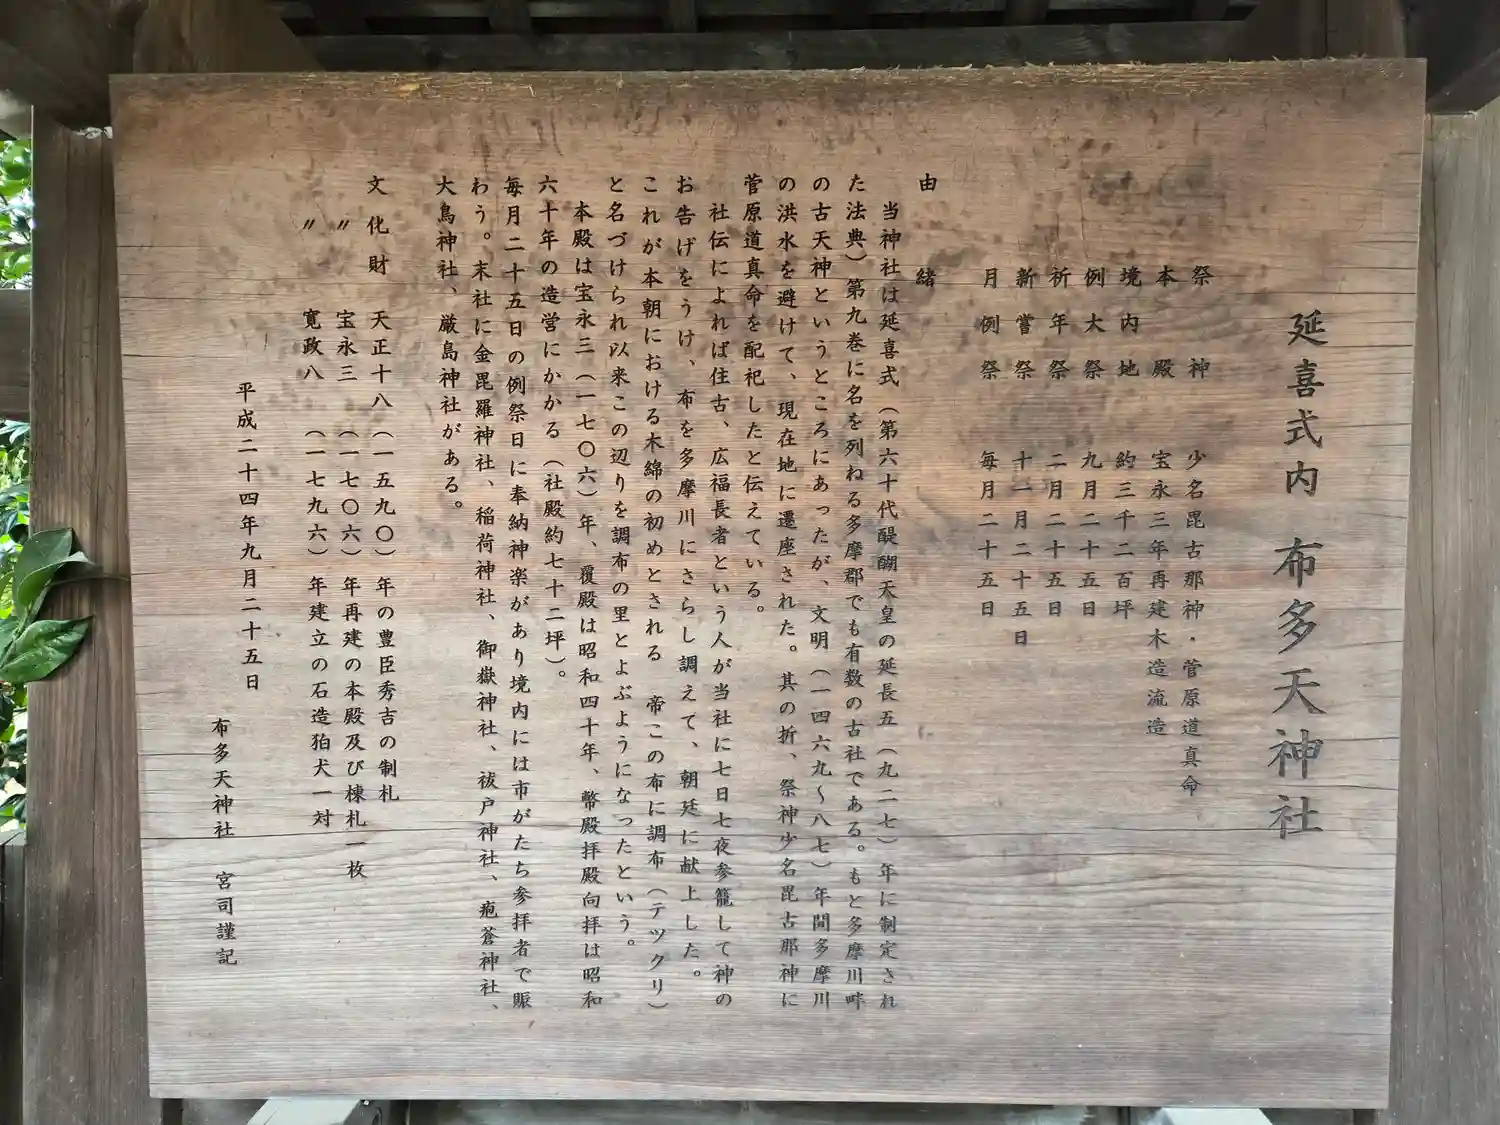 延喜式内 布多天神社
祭神 少名毘古那神・菅原道真命
本殿 宝永三年再建木造流造
境内地 約三千二百坪
例大祭 九月二十五日
祈年祭 二月二十五日
新嘗祭 十一月二十五日
月例祭 毎月二十五日
由緒
当神社は延喜式（第六十代醍醐天皇の延長五（九二七）年に制定され
た法典）第九巻に名を列ねる多摩郡でも有数の古社である。もと多摩川畔
の古天神というところにあったが、文明（一四六九〜八七）年間多摩川
の洪水を避けて、現在地に遷座された。其の折、祭神少名毘古那神に
菅原道真命を配祀したと伝えている。
社伝によれば住古、広福長者という人が当社に七日七夜参籠して神の
お告げをうけ、布を多摩川にさらし調えて、朝廷に献上した。
これが本朝における木綿の初めとされる 帝この布に調布（テツクリ）
と名づけられ以来この辺りを調布の里とよぶようになったという。
本殿は宝永三（一七〇六）年、覆殿は昭和四十年、幣殿拝殿向拝は昭和
六十年の造営にかかる（社殿約七十二坪）。
毎月二十五日の例祭日に奉納神楽があり境内には市がたち参拝者で賑
わう。末社に金毘羅神社、稲荷神社、御嶽神社、祓戸神社、疱蒼神社、
大鳥神社、厳島神社がある。
文化財 天正十八（一五九〇）年の豊臣秀吉の制札
〃 宝永三（一七〇六）年再建の本殿及び棟札一枚
〃 寛政八（一七九六）年建立の石造狛犬一対
平成二十四年九月二十五日
布多天神社 宮司謹記